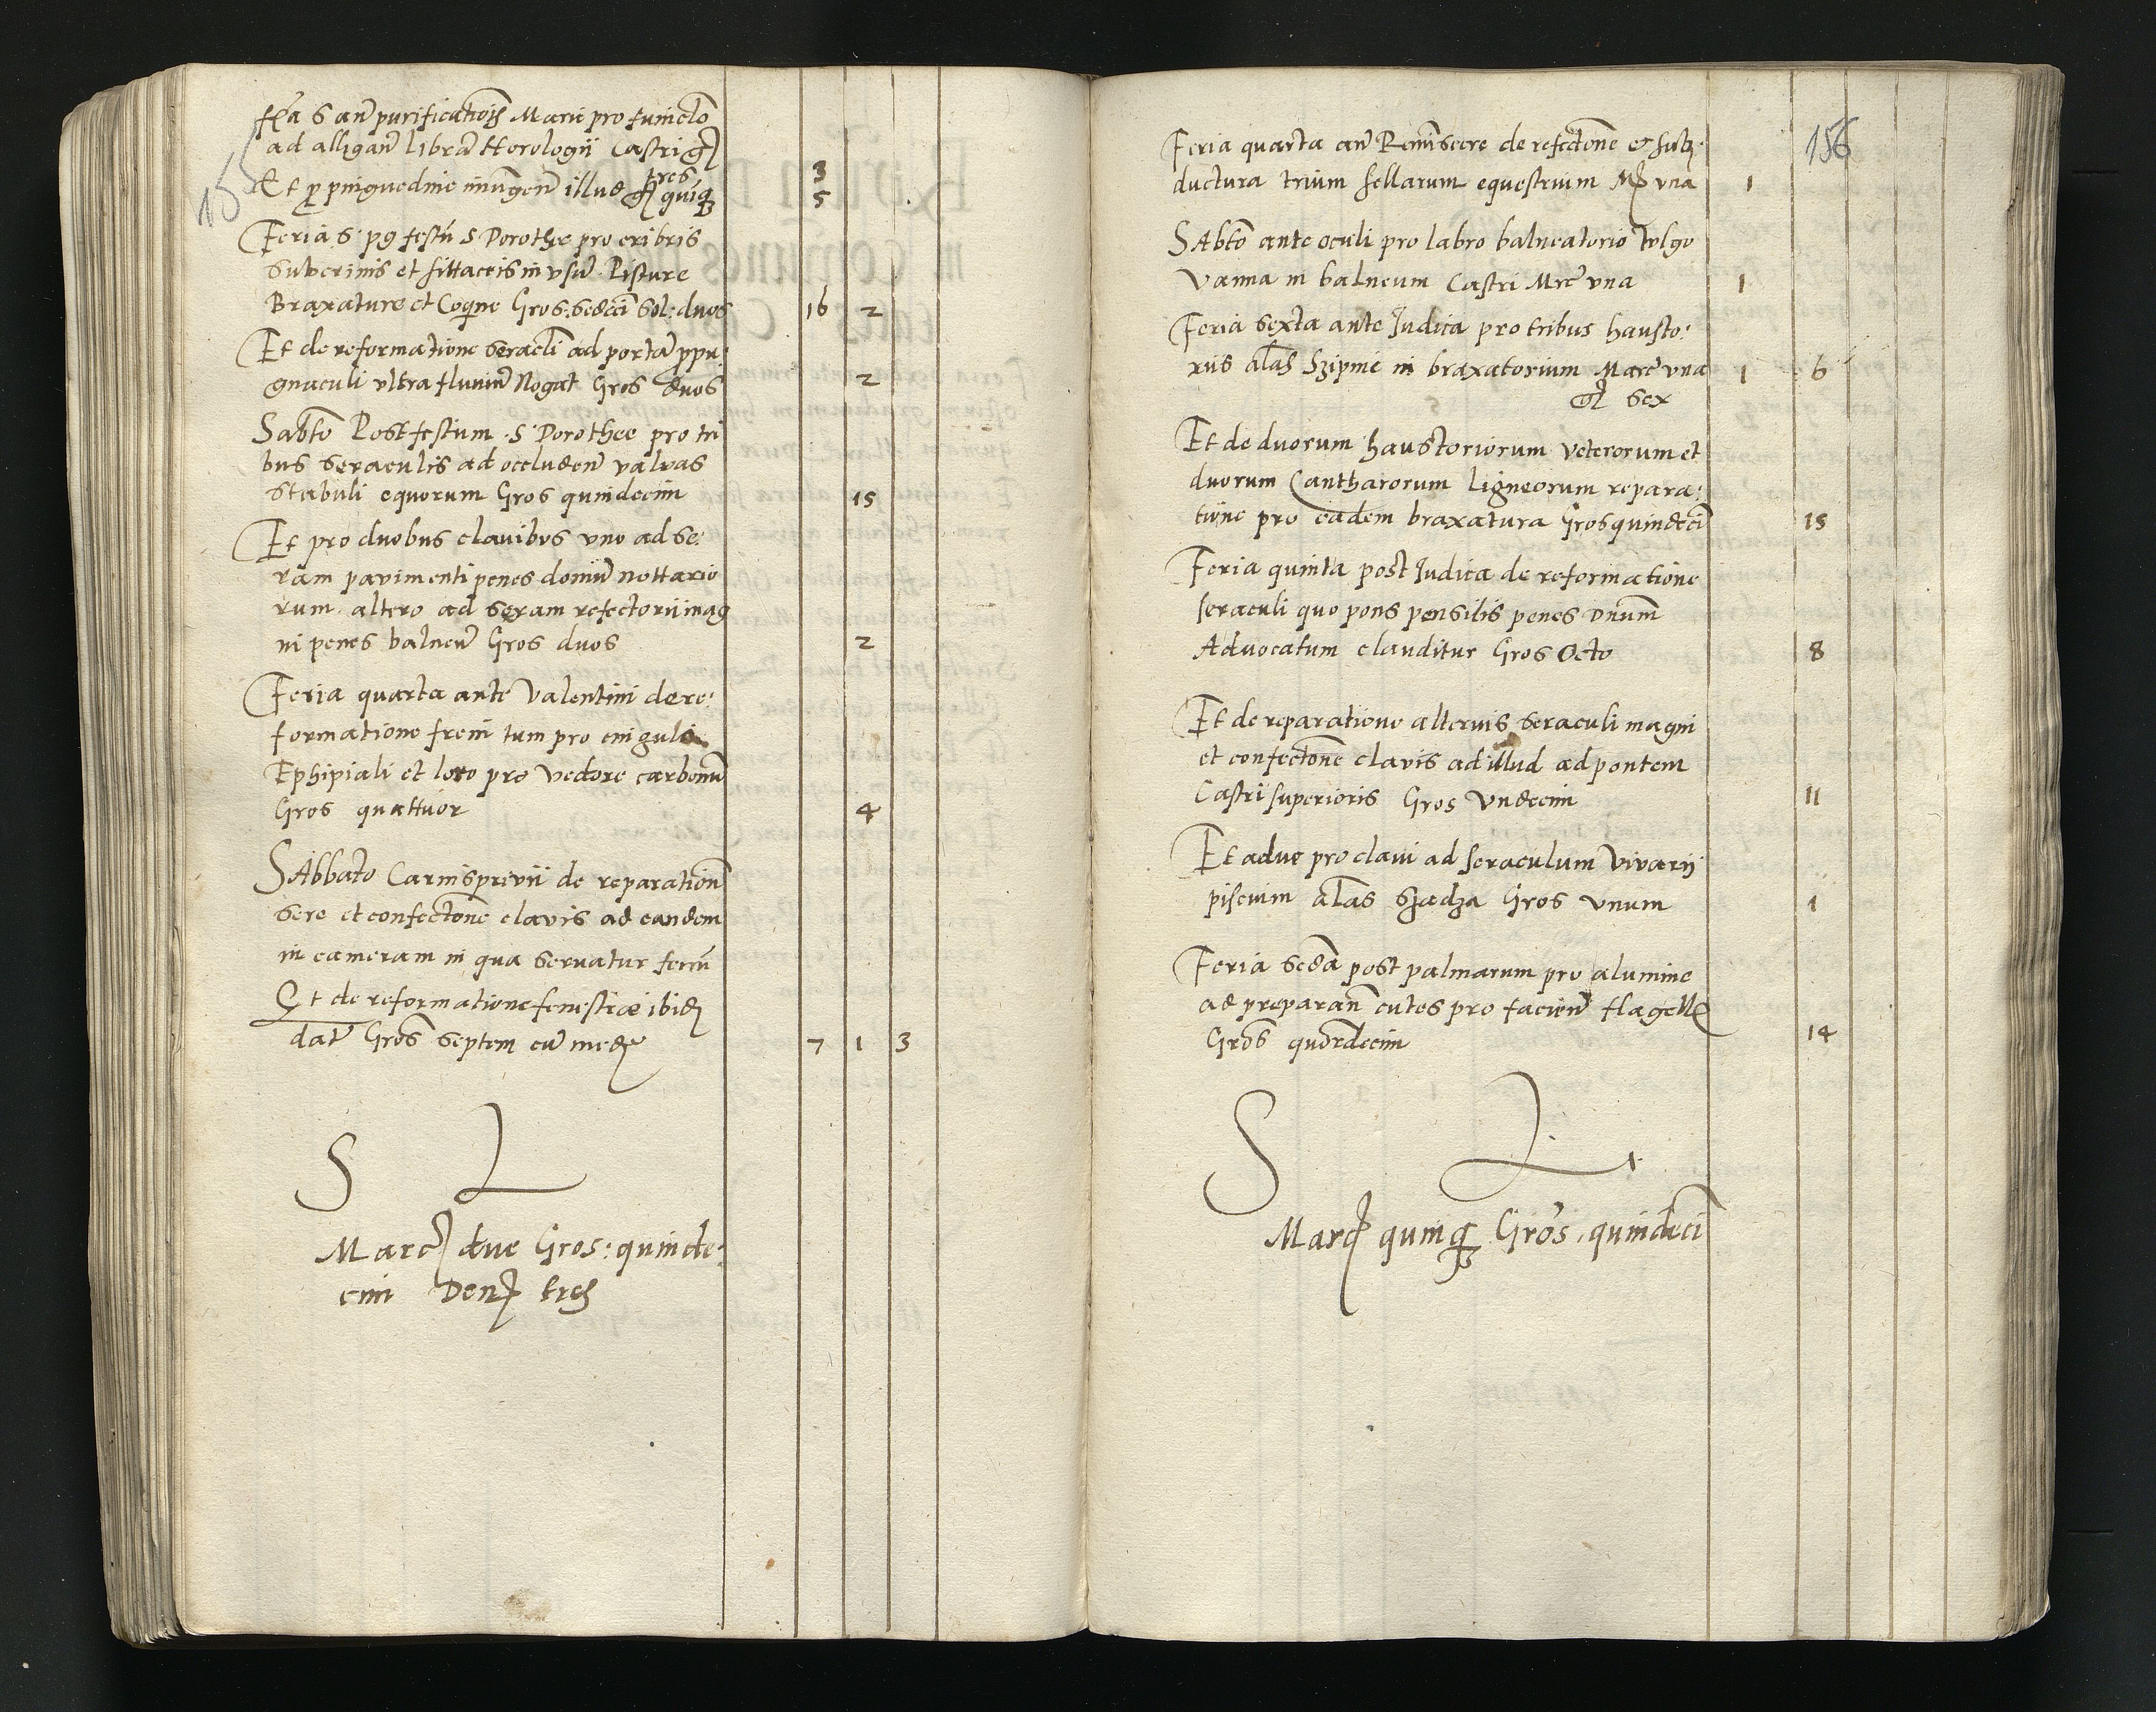 155
fra 6 an purificatiois Marie pro funiclo
ad alligan libra Horologii Castri gr
tres
Et p pinguedine inungen illud gr quinq 3 5
Feria 6 pg festu S Dorothee pro cribris
suberinis et sittaceis in usu Pisture
Braxature et Coqine Gros: sedeci Sol: duos 16 2
Et de reformatione seracli ad porta ppu:
gnaculi ultra fluviu Nogat Gros duos 2
Sabto Post festum S Dorothee pro tri
bus seraculis ad occluden valvas
stabuli equorum Gros quindecim 15
Et pro duobus clauibus uno ad se:
ram pavimenti penes domu nottario
rum altero ad seram refectorii mag
ni penes balneu Gros duos 2
Feria quarta ante Valentini de re:
formatione freni tum pro cingulo
Ephipiali et loro pro Vectore carbonu
Gros quattuor 4
SAbbato Carnisprivii de reparation
sere et confectone clavis ad eandem
in cameram in qua servatur ferru
Et de reformatione fenestrae ibid
dat Gros septem cu med 7 1 3
S L
Marc due Gros: quinde:
cim Den tres
156
Feria quarta an Reminiscere de refectone et sub:
ductura trium sellarum equestrium Mr una 1
SAbto ante oculi pro labro balneatorio vulgo
Vanna in balneum Castri Mrc una 1
Feria sexta ante Judica pro tribus hausto:
riis alas Szipnie in braxatorium Marc una 1 6
gr sex
Et de duorum haustoriorum veterorum et
duorum Cantharorum ligneorum repara:
tione pro eadem braxatura Gros quindeci 15
Feria quinta post Judica de reformatione
seraculi quo pons pensilis penes Dnum
Advocatum clauditur Gros Octo 8
Et de reparatione alterius seraculi magni
et confectone clavis ad illud ad pontem
Castri superioris Gros Undecim 11
Et aduc pro clavi ad seraculum Vivarii
piscium alas Sadza Gros unum 1
Feria secda post palmarum pro alumine
ad preparan cutes pro facien flagell
Gros quordecim 14
S L
Marc quinq Gros quindeci